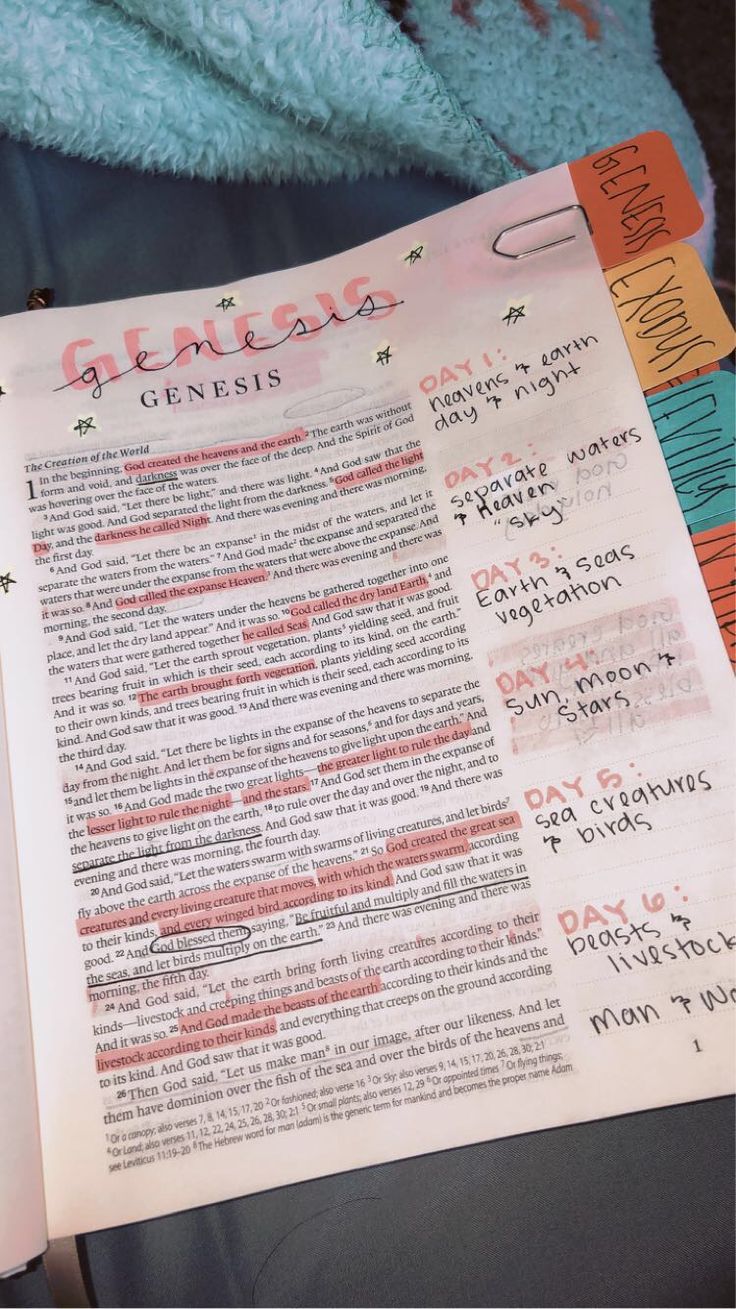 GENESIS
genesis
GENESIS
The Creation of the World
1 In the beginning, God created the heavens and the earth. 2 The earth was without
form and void, and darkness was over the face of the deep. And the Spirit of God
was hovering over the face of the waters.
3 And God said, “Let there be light,” and there was light. 4 And God saw that the
light was good. And God separated the light from the darkness. 5 God called the light
Day, and the darkness he called Night. And there was evening and there was morning,
the first day.
6 And God said, “Let there be an expanse1 in the midst of the waters, and let it
separate the waters from the waters.” 7 And God made2 the expanse and separated the
waters that were under the expanse from the waters that were above the expanse. And
it was so. 8 And God called the expanse Heaven.3 And there was evening and there was
morning, the second day.
9 And God said, “Let the waters under the heavens be gathered together into one
place, and let the dry land appear.” And it was so. 10 God called the dry land Earth,4 and
the waters that were gathered together he called Seas. And God saw that it was good.
11 And God said, “Let the earth sprout vegetation, plants5 yielding seed, and fruit
trees bearing fruit in which is their seed, each according to its kind, on the earth.”
And it was so. 12 The earth brought forth vegetation, plants yielding seed according
to their own kinds, and trees bearing fruit in which is their seed, each according to its
kind. And God saw that it was good. 13 And there was evening and there was morning,
the third day.
14 And God said, “Let there be lights in the expanse of the heavens to separate the
day from the night. And let them be for signs and for seasons,6 and for days and years,
15 and let them be lights in the expanse of the heavens to give light upon the earth.” And
it was so. 16 And God made the two great lights—the greater light to rule the day and
the lesser light to rule the night—and the stars. 17 And God set them in the expanse of
the heavens to give light on the earth, 18 to rule over the day and over the night, and to
separate the light from the darkness. And God saw that it was good. 19 And there was
evening and there was morning, the fourth day.
20 And God said, “Let the waters swarm with swarms of living creatures, and let birds7
fly above the earth across the expanse of the heavens.” 21 So God created the great sea
creatures and every living creature that moves, with which the waters swarm, according
to their kinds, and every winged bird according to its kind. And God saw that it was
good. 22 And God blessed them, saying, “Be fruitful and multiply and fill the waters in
the seas, and let birds multiply on the earth.” 23 And there was evening and there was
morning, the fifth day.
24 And God said, “Let the earth bring forth living creatures according to their
kinds—livestock and creeping things and beasts of the earth according to their kinds.”
And it was so. 25 And God made the beasts of the earth according to their kinds and the
livestock according to their kinds, and everything that creeps on the ground according
to its kind. And God saw that it was good.
26 Then God said, “Let us make man8 in our image, after our likeness. And let
them have dominion over the fish of the sea and over the birds of the heavens and
1 Or a canopy; also verses 7, 8, 14, 15, 17, 20 2 Or fashioned; also verse 16 3 Or Sky; also verses 9, 14, 15, 17, 20, 26, 28, 30; 2:1
4 Or Land; also verses 11, 12, 22, 24, 25, 26, 28, 30; 2:1 5 Or small plants; also verses 12, 29 6 Or appointed times 7 Or flying things;
see Leviticus 11:19–20 8 The Hebrew word for man (adam) is the generic term for mankind and becomes the proper name Adam
DAY 1:
heavens & earth
day & night
DAY 2:
separate waters
& Heaven
"sky
DAY 3:
Earth & seas
vegetation
DAY 4:
Sun, moon &
stars
DAY 5:
sea creatures
& birds
DAY 6:
beasts &
livestock
man & Wo
1
GENESIS
EXODUS